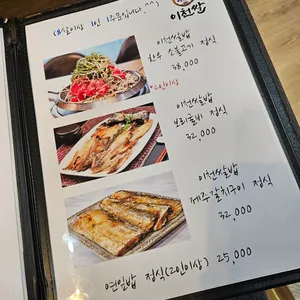 (8살이상 1인 1주문입니다.^^)
이천쌀
이천쌀밥
한우 소불고기 정식
38,000
(2인이상)
이천쌀밥
보리굴비 정식
32,000
이천쌀밥
제주갈치구이 정식
32,000
연잎밥 정식(2인이상) 25,000